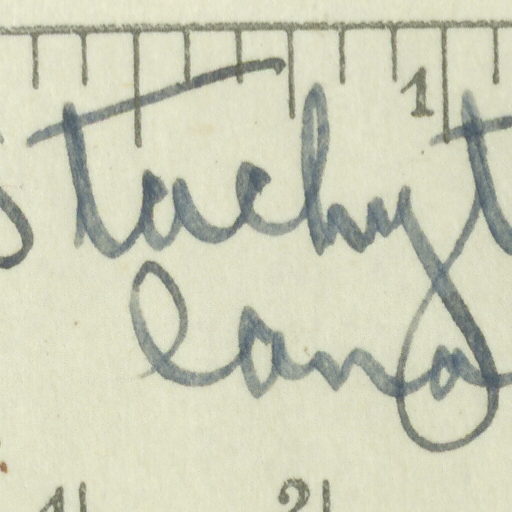 1
Stachyt
lana
1 2